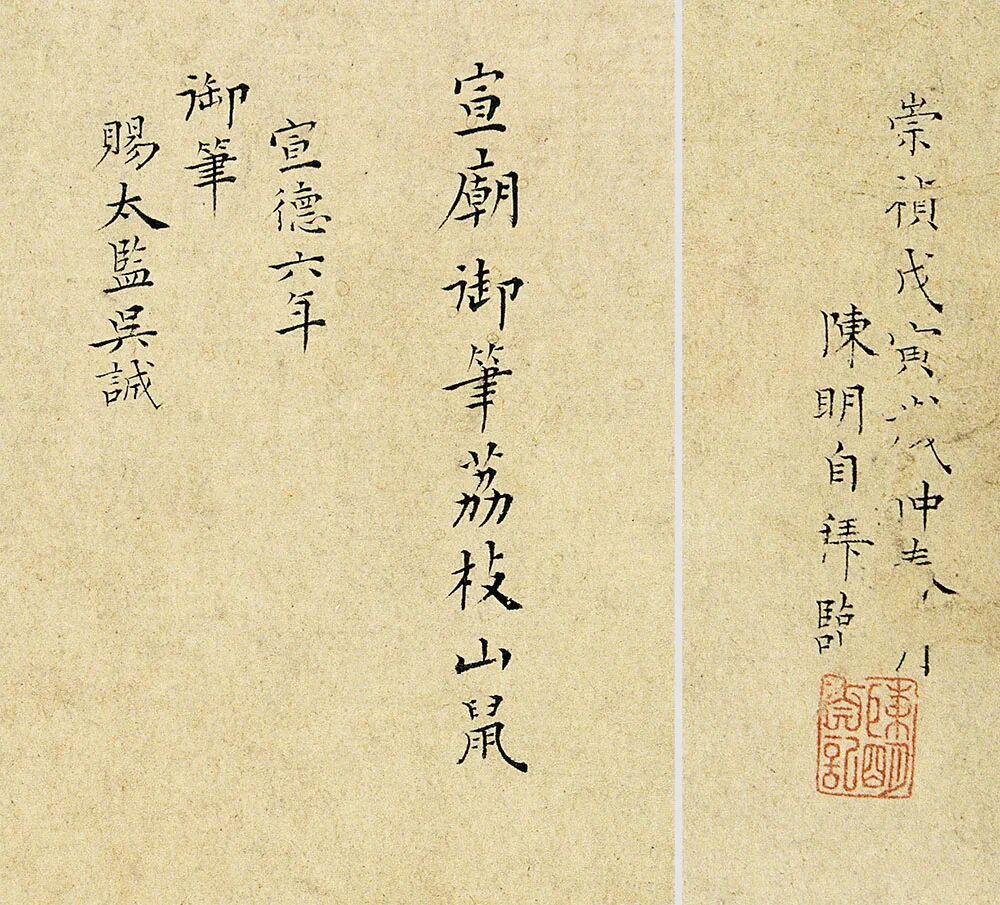 崇禎戊寅歲仲春月
陳明自拜臨
宣廟御筆荔枝山鼠
宣德六年
御筆
賜太監吳誠